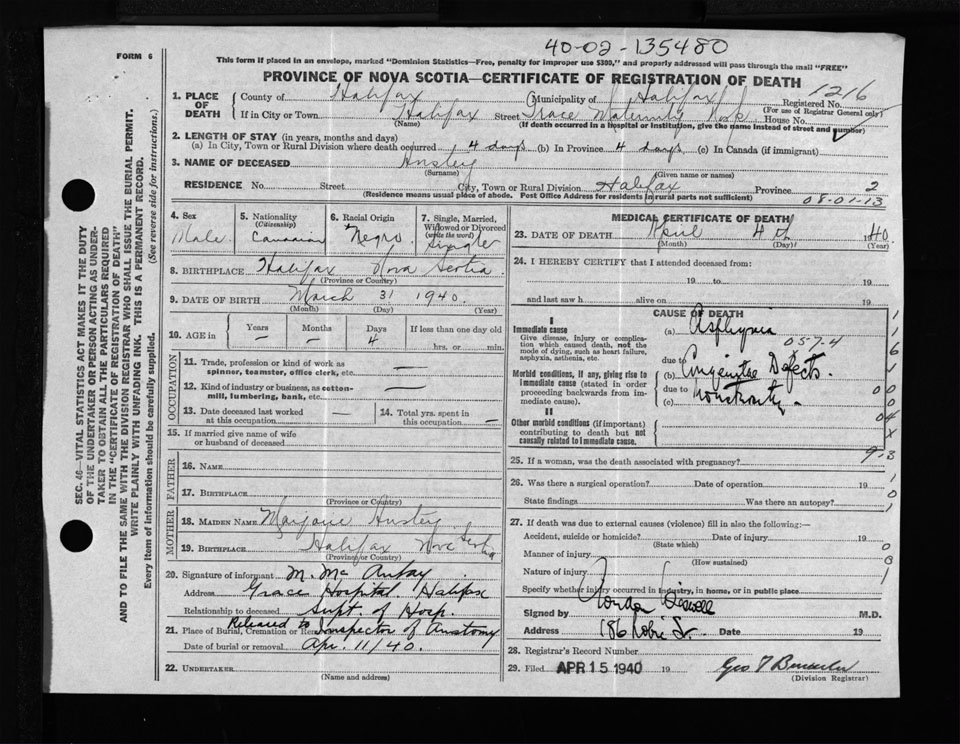 40-02-135480
FORM 6
This form if placed in an envelope, marked "Dominion Statistics—Free, penalty for improper use $300," and properly addressed will pass through the mail "FREE"
PROVINCE OF NOVA SCOTIA—CERTIFICATE OF REGISTRATION OF DEATH
1216
1. PLACE OF DEATH
County of Halifax Municipality of Halifax Registered No.
(For use of Registrar General only)
If in City or Town Halifax Street Grace Maternity Hosp House No.
(Name) (If death occurred in a hospital or institution, give the name instead of street and number)
2. LENGTH OF STAY (in years, months and days)
(a) In City, Town or Rural Division where death occurred 4 days (b) In Province 4 days (c) In Canada (if immigrant)
3. NAME OF DECEASED
(Surname) (Given name or names)
RESIDENCE No. Street City, Town or Rural Division Halifax Province 2
(Residence means usual place of abode. Post Office Address for residents in rural parts not sufficient)
08-01-13
4. Sex
Male
5. Nationality
(Citizenship)
Canadian
6. Racial Origin
Negro
7. Single, Married, Widowed or Divorced
(write the word)
Single
8. BIRTHPLACE Halifax Nova Scotia
(Province or Country)
9. DATE OF BIRTH March 31 1940
(Month) (Day) (Year)
10. AGE in
Years Months Days If less than one day old
— — 4 hrs. or min.
OCCUPATION
11. Trade, profession or kind of work as spinner, teamster, office clerk, etc. —
12. Kind of industry or business, as cotton-mill, lumbering, bank, etc. —
13. Date deceased last worked at this occupation —
14. Total yrs. spent in this occupation —
15. If married give name of wife or husband of deceased
FATHER
16. NAME
17. BIRTHPLACE
(Province or Country)
MOTHER
18. MAIDEN NAME Marjorie
19. BIRTHPLACE Halifax Nova Scotia
(Province or Country)
20. Signature of informant M.
Address Grace Hospital. Halifax
Relationship to deceased Supt. of Hosp.
21. Place of Burial, Cremation or Removal Released to Inspector of Anatomy
Date of burial or removal Apr. 11/40.
22. UNDERTAKER
(Name and address)
MEDICAL CERTIFICATE OF DEATH
23. DATE OF DEATH April 4th 1940
(Month) (Day) (Year)
24. I HEREBY CERTIFY that I attended deceased from:
19 to 19
and last saw h alive on 19
CAUSE OF DEATH
I
Immediate cause
Give disease, injury or complication which caused death, not the mode of dying, such as heart failure, asphyxia, asthenia, etc.
(a) Asphyxia
057-4
due to
Morbid conditions, if any, giving rise to immediate cause (stated in order proceeding backwards from immediate cause).
(b) Congenital Defects.
due to
(c) Monstrosity
II
Other morbid conditions (if important) contributing to death but not causally related to immediate cause.
25. If a woman, was the death associated with pregnancy?
26. Was there a surgical operation? Date of operation 19
State findings Was there an autopsy?
27. If death was due to external causes (violence) fill in also the following:—
Accident, suicide or homicide? Date of injury 19
(State which)
Manner of injury
(How sustained)
Nature of injury
Specify whether injury occurred in industry, in home, or in public place
Signed by M.D.
Address 186 Robie St. Date 19
28. Registrar's Record Number
29. Filed APR 15 1940 19
(Division Registrar)
SEC. 46—VITAL STATISTICS ACT MAKES IT THE DUTY
OF THE UNDERTAKER OR PERSON ACTING AS UNDER-
TAKER TO OBTAIN ALL THE PARTICULARS REQUIRED
IN THE "CERTIFICATE OF REGISTRATION OF DEATH"
AND TO FILE THE SAME WITH THE DIVISION REGISTRAR WHO SHALL ISSUE THE BURIAL PERMIT.
WRITE PLAINLY WITH UNFADING INK. THIS IS A PERMANENT RECORD.
Every item of information should be carefully supplied. (See reverse side for instructions.)